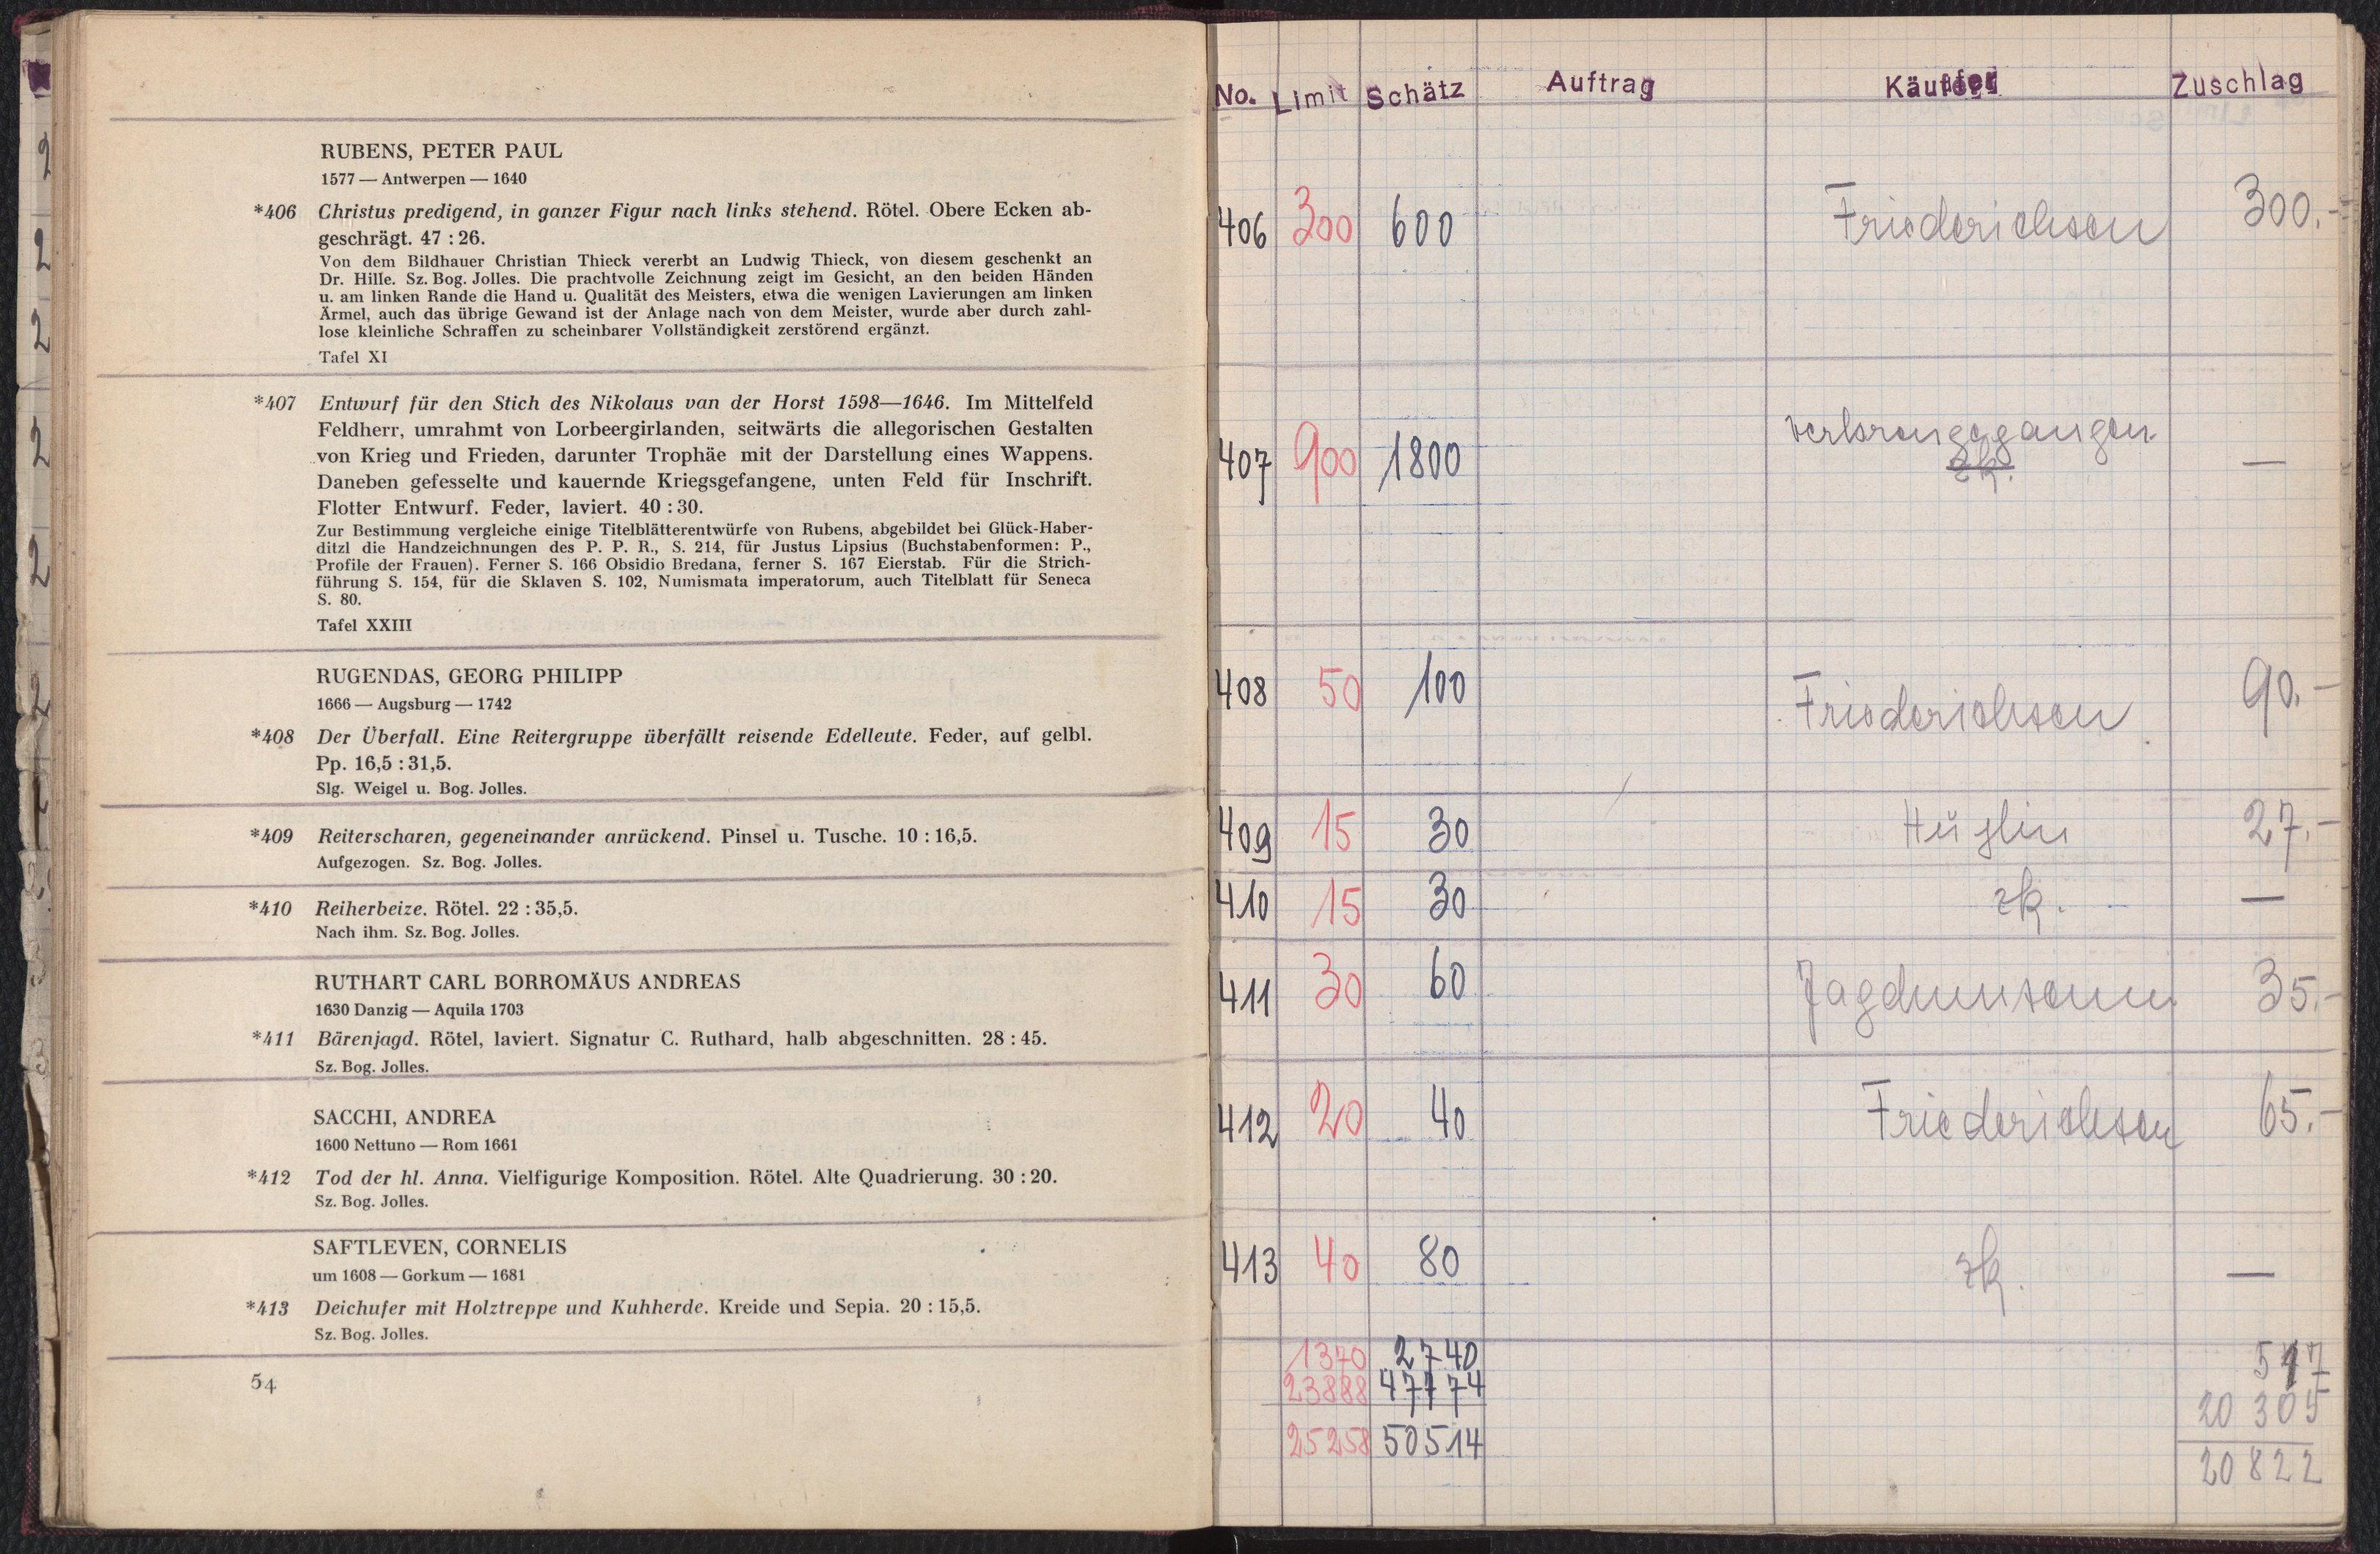 RUBENS, PETER PAUL
1577 — Antwerpen — 1640
*406 Christus predigend, in ganzer Figur nach links stehend. Rötel. Obere Ecken ab-
geschrägt. 47 : 26.
Von dem Bildhauer Christian Thieck vererbt an Ludwig Thieck, von diesem geschenkt an
Dr. Hille. Sz. Bog. Jolles. Die prachtvolle Zeichnung zeigt im Gesicht, an den beiden Händen
u. am linken Rande die Hand u. Qualität des Meisters, etwa die wenigen Lavierungen am linken
Ärmel, auch das übrige Gewand ist der Anlage nach von dem Meister, wurde aber durch zahl-
lose kleinliche Schraffen zu scheinbarer Vollständigkeit zerstörend ergänzt.
Tafel XI
*407 Entwurf für den Stich des Nikolaus van der Horst 1598—1646. Im Mittelfeld
Feldherr, umrahmt von Lorbeergirlanden, seitwärts die allegorischen Gestalten
von Krieg und Frieden, darunter Trophäe mit der Darstellung eines Wappens.
Daneben gefesselte und kauernde Kriegsgefangene, unten Feld für Inschrift.
Flotter Entwurf. Feder, laviert. 40 : 30.
Zur Bestimmung vergleiche einige Titelblätterentwürfe von Rubens, abgebildet bei Glück-Haber-
ditzl die Handzeichnungen des P. P. R., S. 214, für Justus Lipsius (Buchstabenformen: P.,
Profile der Frauen). Ferner S. 166 Obsidio Bredana, ferner S. 167 Eierstab. Für die Strich-
führung S. 154, für die Sklaven S. 102, Numismata imperatorum, auch Titelblatt für Seneca
S. 80.
Tafel XXIII
RUGENDAS, GEORG PHILIPP
1666 — Augsburg — 1742
*408 Der Überfall. Eine Reitergruppe überfällt reisende Edelleute. Feder, auf gelbl.
Pp. 16,5 : 31,5.
Slg. Weigel u. Bog. Jolles.
*409 Reiterscharen, gegeneinander anrückend. Pinsel u. Tusche. 10 : 16,5.
Aufgezogen. Sz. Bog. Jolles.
*410 Reiherbeize. Rötel. 22 : 35,5.
Nach ihm. Sz. Bog. Jolles.
RUTHART CARL BORROMÄUS ANDREAS
1630 Danzig — Aquila 1703
*411 Bärenjagd. Rötel, laviert. Signatur C. Ruthard, halb abgeschnitten. 28 : 45.
Sz. Bog. Jolles.
SACCHI, ANDREA
1600 Nettuno — Rom 1661
*412 Tod der hl. Anna. Vielfigurige Komposition. Rötel. Alte Quadrierung. 30 : 20.
Sz. Bog. Jolles.
SAFTLEVEN, CORNELIS
um 1608 — Gorkum — 1681
*413 Deichufer mit Holztreppe und Kuhherde. Kreide und Sepia. 20 : 15,5.
Sz. Bog. Jolles.
54
No. Limit Schätz Auftrag Käufer Zuschlag
406 300 600 Friederichsen 300.-
407 900 1800 verlorengegangen —
zk.
408 50 100 Friederichsen 90.-
409 15 30 27.-
410 15 30 zk. —
411 30 60 35.-
412 20 40 Friederichsen 65.-
413 40 80 zk. —
1370 2740 517
23888 47774 20 305
25258 50514 20 822